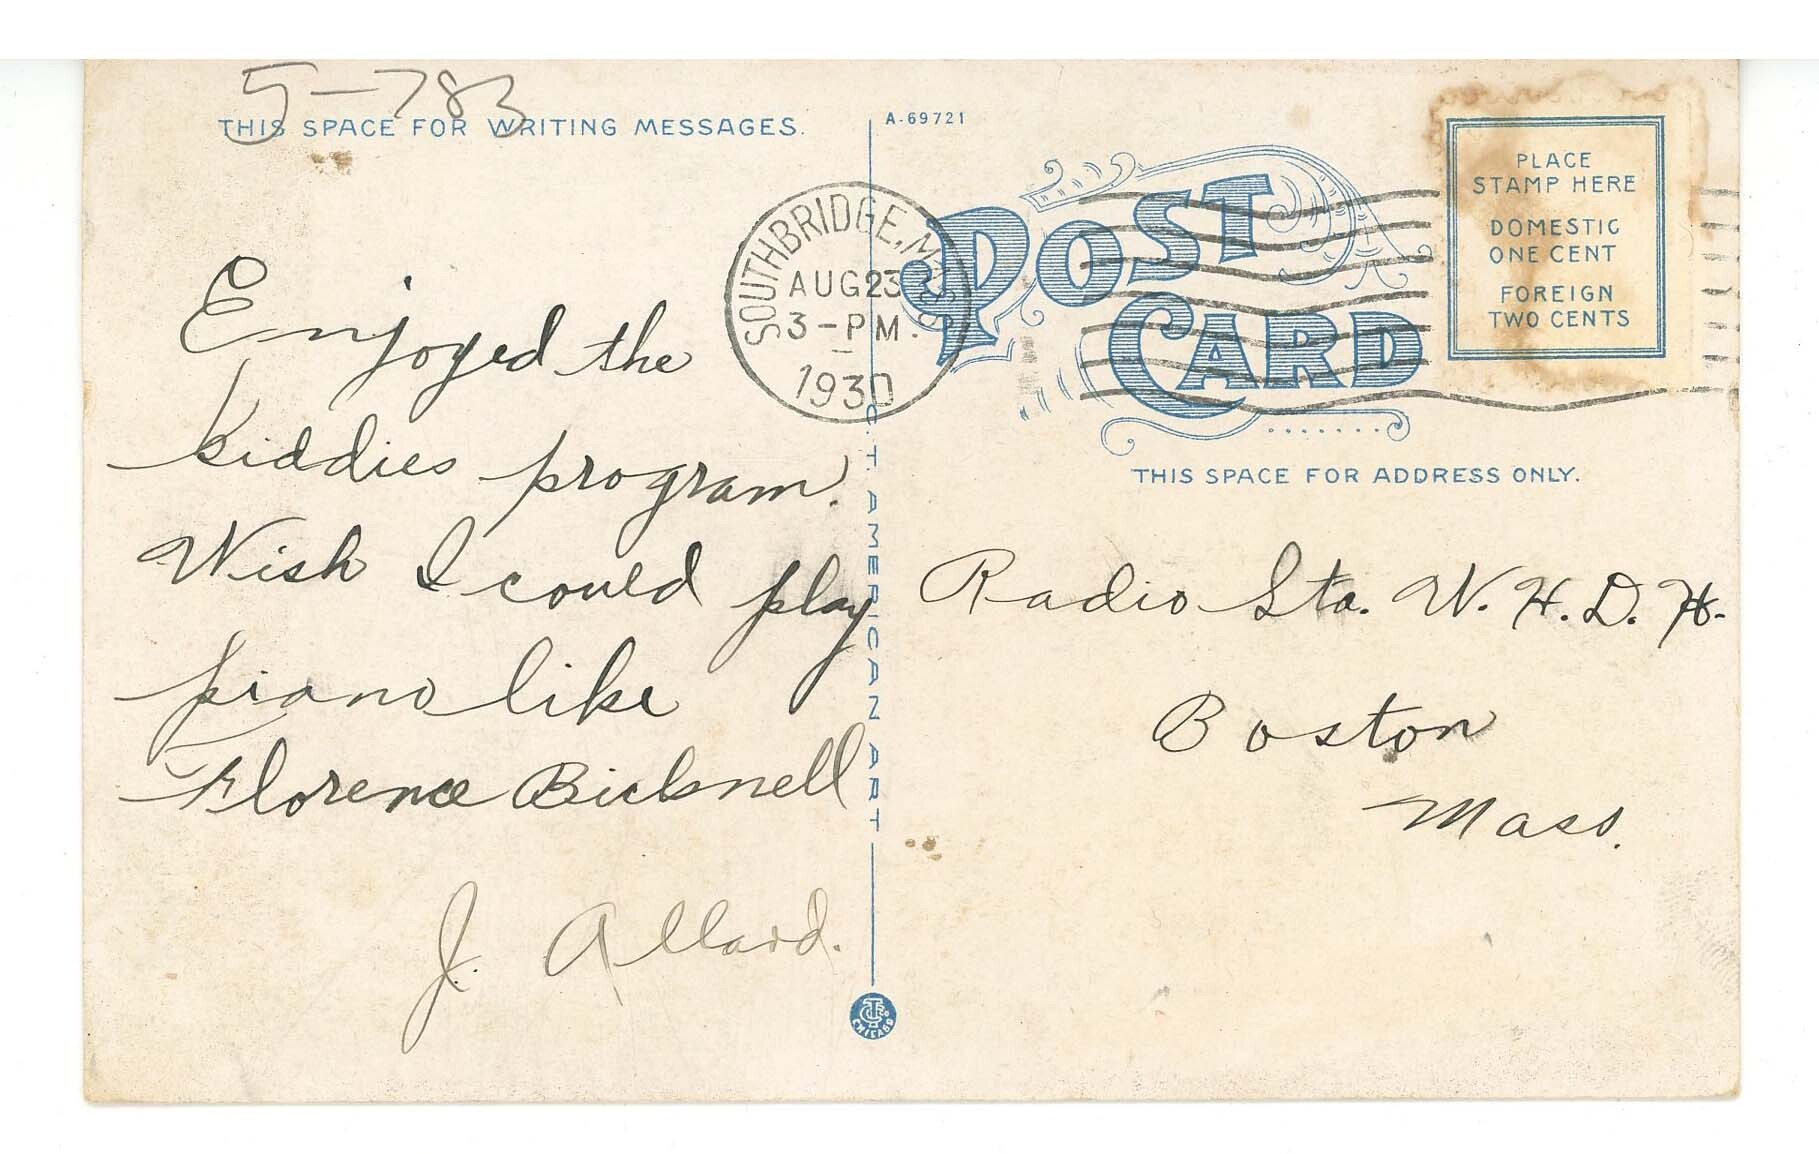 5-783
THIS SPACE FOR WRITING MESSAGES.
Enjoyed the
kiddies program.
Wish I could play
piano like
Florence Bicknell
J. Allard.
A-69721
SOUTHBRIDGE, MASS.
AUG 23
3-PM.
1930
C.T. AMERICAN ART
POST
CARD
PLACE
STAMP HERE
DOMESTIC
ONE CENT
FOREIGN
TWO CENTS
THIS SPACE FOR ADDRESS ONLY.
Radio Sta. W.H.D.H.
Boston
Mass.
CHICAGO